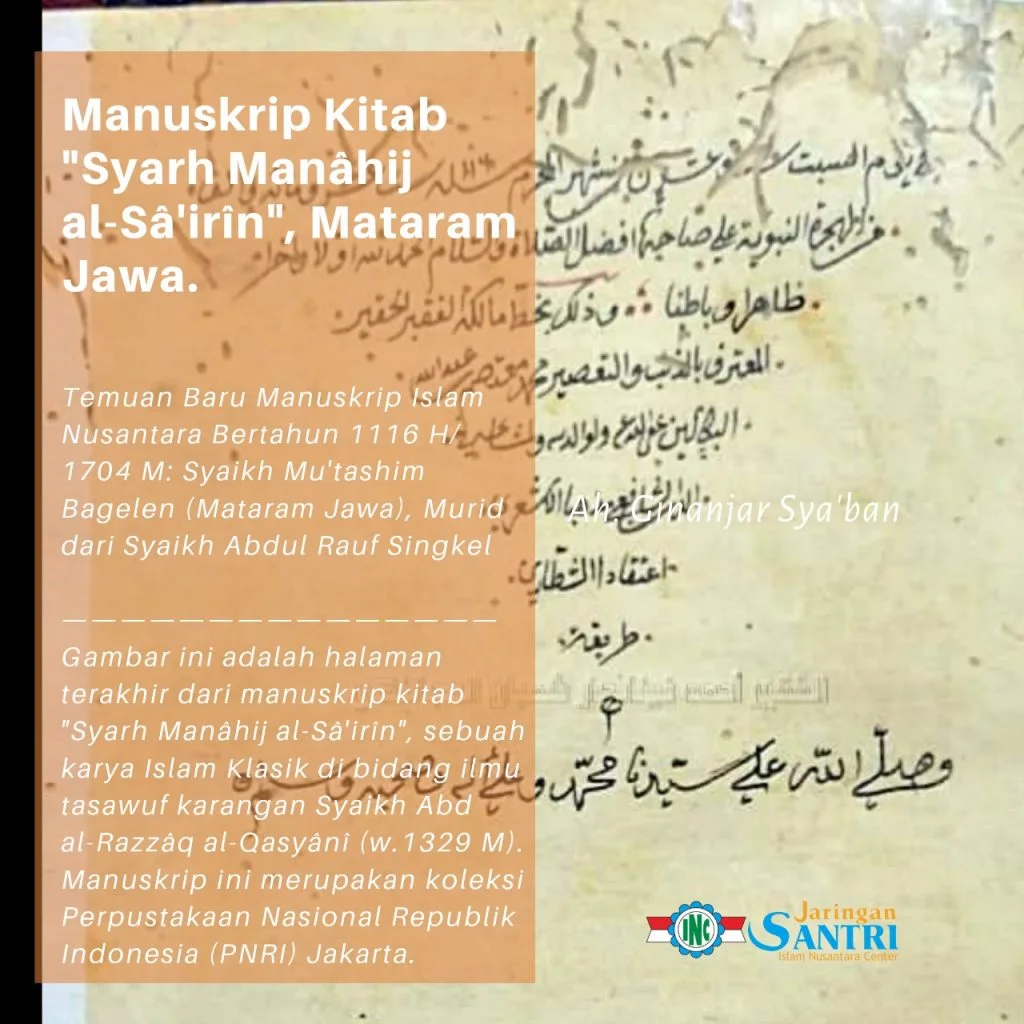 Manuskrip Kitab
"Syarh Manâhij
al-Sâ'irîn", Mataram
Jawa.
Temuan Baru Manuskrip Islam
Nusantara Bertahun 1116 H/
1704 M: Syaikh Mu'tashim
Bagelen (Mataram Jawa), Murid
dari Syaikh Abdul Rauf Singkel
———————————————
Gambar ini adalah halaman
terakhir dari manuskrip kitab
"Syarh Manâhij al-Sâ'irîn", sebuah
karya Islam Klasik di bidang ilmu
tasawuf karangan Syaikh Abd
al-Razzâq al-Qasyânî (w.1329 M).
Manuskrip ini merupakan koleksi
Perpustakaan Nasional Republik
Indonesia (PNRI) Jakarta.
يوم السبت شهر المحرم سنة ١١١٦
من الهجرة النبوية على صاحبها افضل الصلاة والسلام
ظاهرا وباطنا وذلك بخط مالكه الفقير الحقير
المعترف بالذنب والتقصير محمد معتصم عبد الله
ولوالديه
اعتقادا الشطاري
طريقة
وصلى الله على سيدنا محمد وعلى
Ah. Ginanjar Sya'ban
INC
Jaringan
SANTRI
Islam Nusantara Center